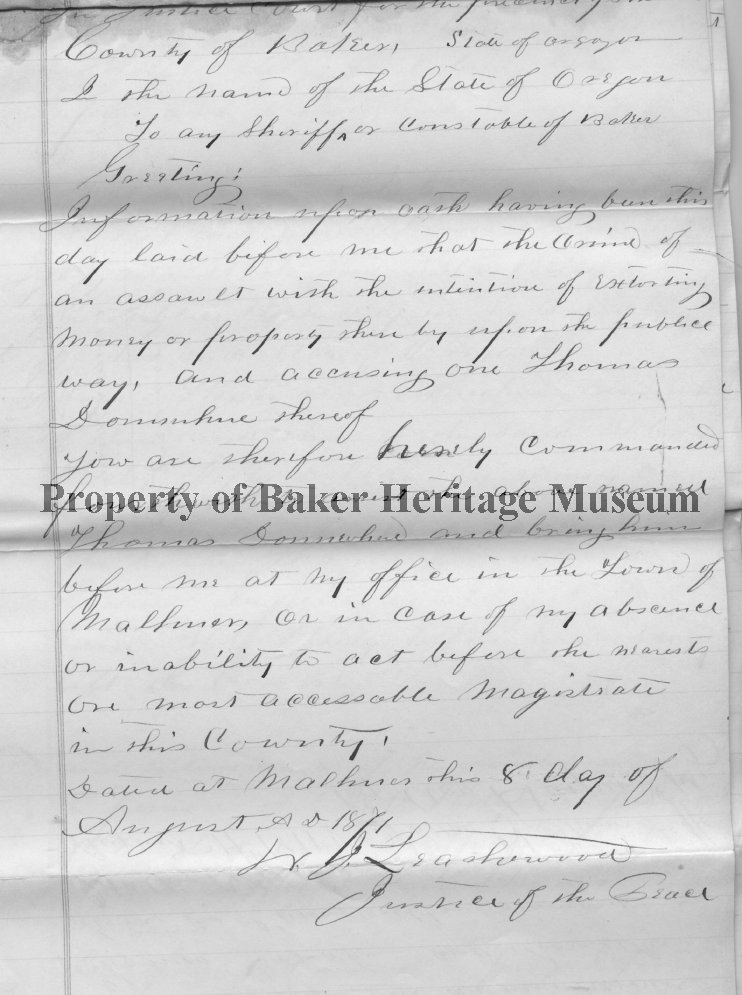 In Justice Court for the precinct
County of Baker, State of oregon
I the name of the State of Oregon
To any Sheriff, or Constable of Baker
Greeting:
Information upon oath having been this
day laid before me that the Crime of
an assault with the intention of Extorting
Money or foroperty there by upon the publice
way, and accusing one Thomas
Donnuhue thereof
you are therefore hereby Commanded
forthwith to arrest the above named
Property of Baker Heritage Museum
Thomas Donnuhue and bring him
before me at my office in the Town of
Malhuer, Or in case of my absence
or inability to act before the nearests
ore most accessable Magistrate
in this County,
Dated at Malhuer this 8 day of
August, A D 1871
Leashowood
Justice of the Peace